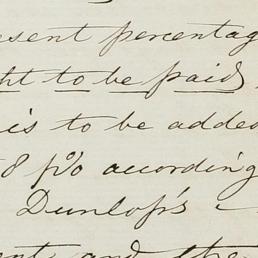 esent percentag
ht to be paid,
is to be added
8 p% according
Dunlop's
ent and the